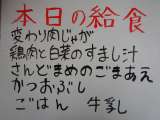 本日の給食
変わり肉じゃが
鶏肉と白菜のすまし汁
さんどまめのごまあえ
かつおぶし
ごはん 牛乳